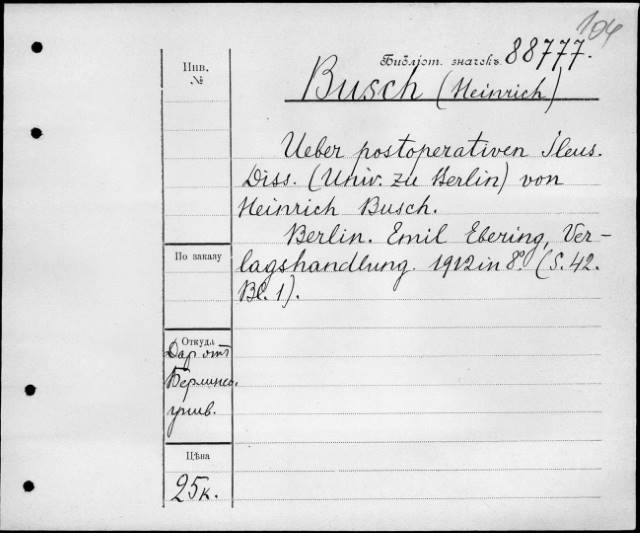 104
Библіот. значекъ 88777.
Инв.
№
Busch (Heinrich)
Ueber postoperativen Ileus.
Diss. (Univ. zu Berlin) von
Heinrich Busch.
Berlin. Emil Ebering, Ver-
lagshandlung. 1912 in 8º. (S. 42.
Bl. 1).
По заказу
Откуда
Даръ отъ
Берлинск.
унив.
Цѣна
25 к.